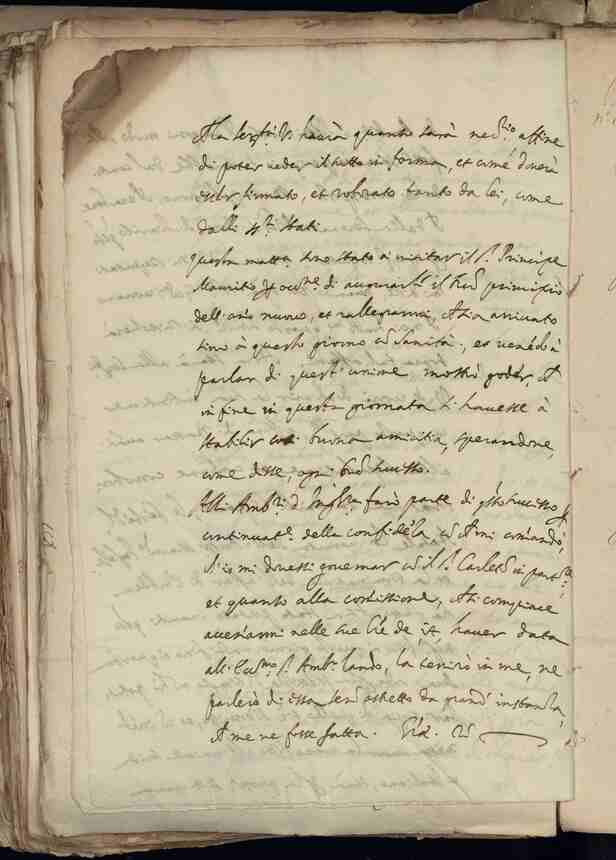 Alla Ser.tà V.ra haverà quanto sarà nec.rio affine
di poter veder il tutto in forma, et come doverà
esser firmato, et roborato tanto da lei, come
dalli SS.ri Stati.
Questa matt.a sono stato a visitar il S.r Principe
Mauritio p occ.ne di augurarli il principio
dell'año nuovo, et rallegrarmi, arrivato
sino à questo giorno cõ sanità, et venẽdo à
parlar di quest'unione mostrò goder, ch
in fine in questa giornata si havesse à
stabilir buona amicitia, sperandone,
come disse, ogni buõ frutto.
Alli Amb.ri d'Ingh.ra farò parte di q̃sto
continuat.e della confidẽza, cõ mi comãdò,
ch'io mi dovessi governar cõ il S.r Carletõ in part.re
et quanto alla comissione, compiace
avisarmi nelle sue l're de haver data
all'Ecc.mo S.r Amb.r Lando, la tenirò in me, ne
parlerò di essa senõ astretto da grand'instanza,
ch me ne fosse fatta. Gra.